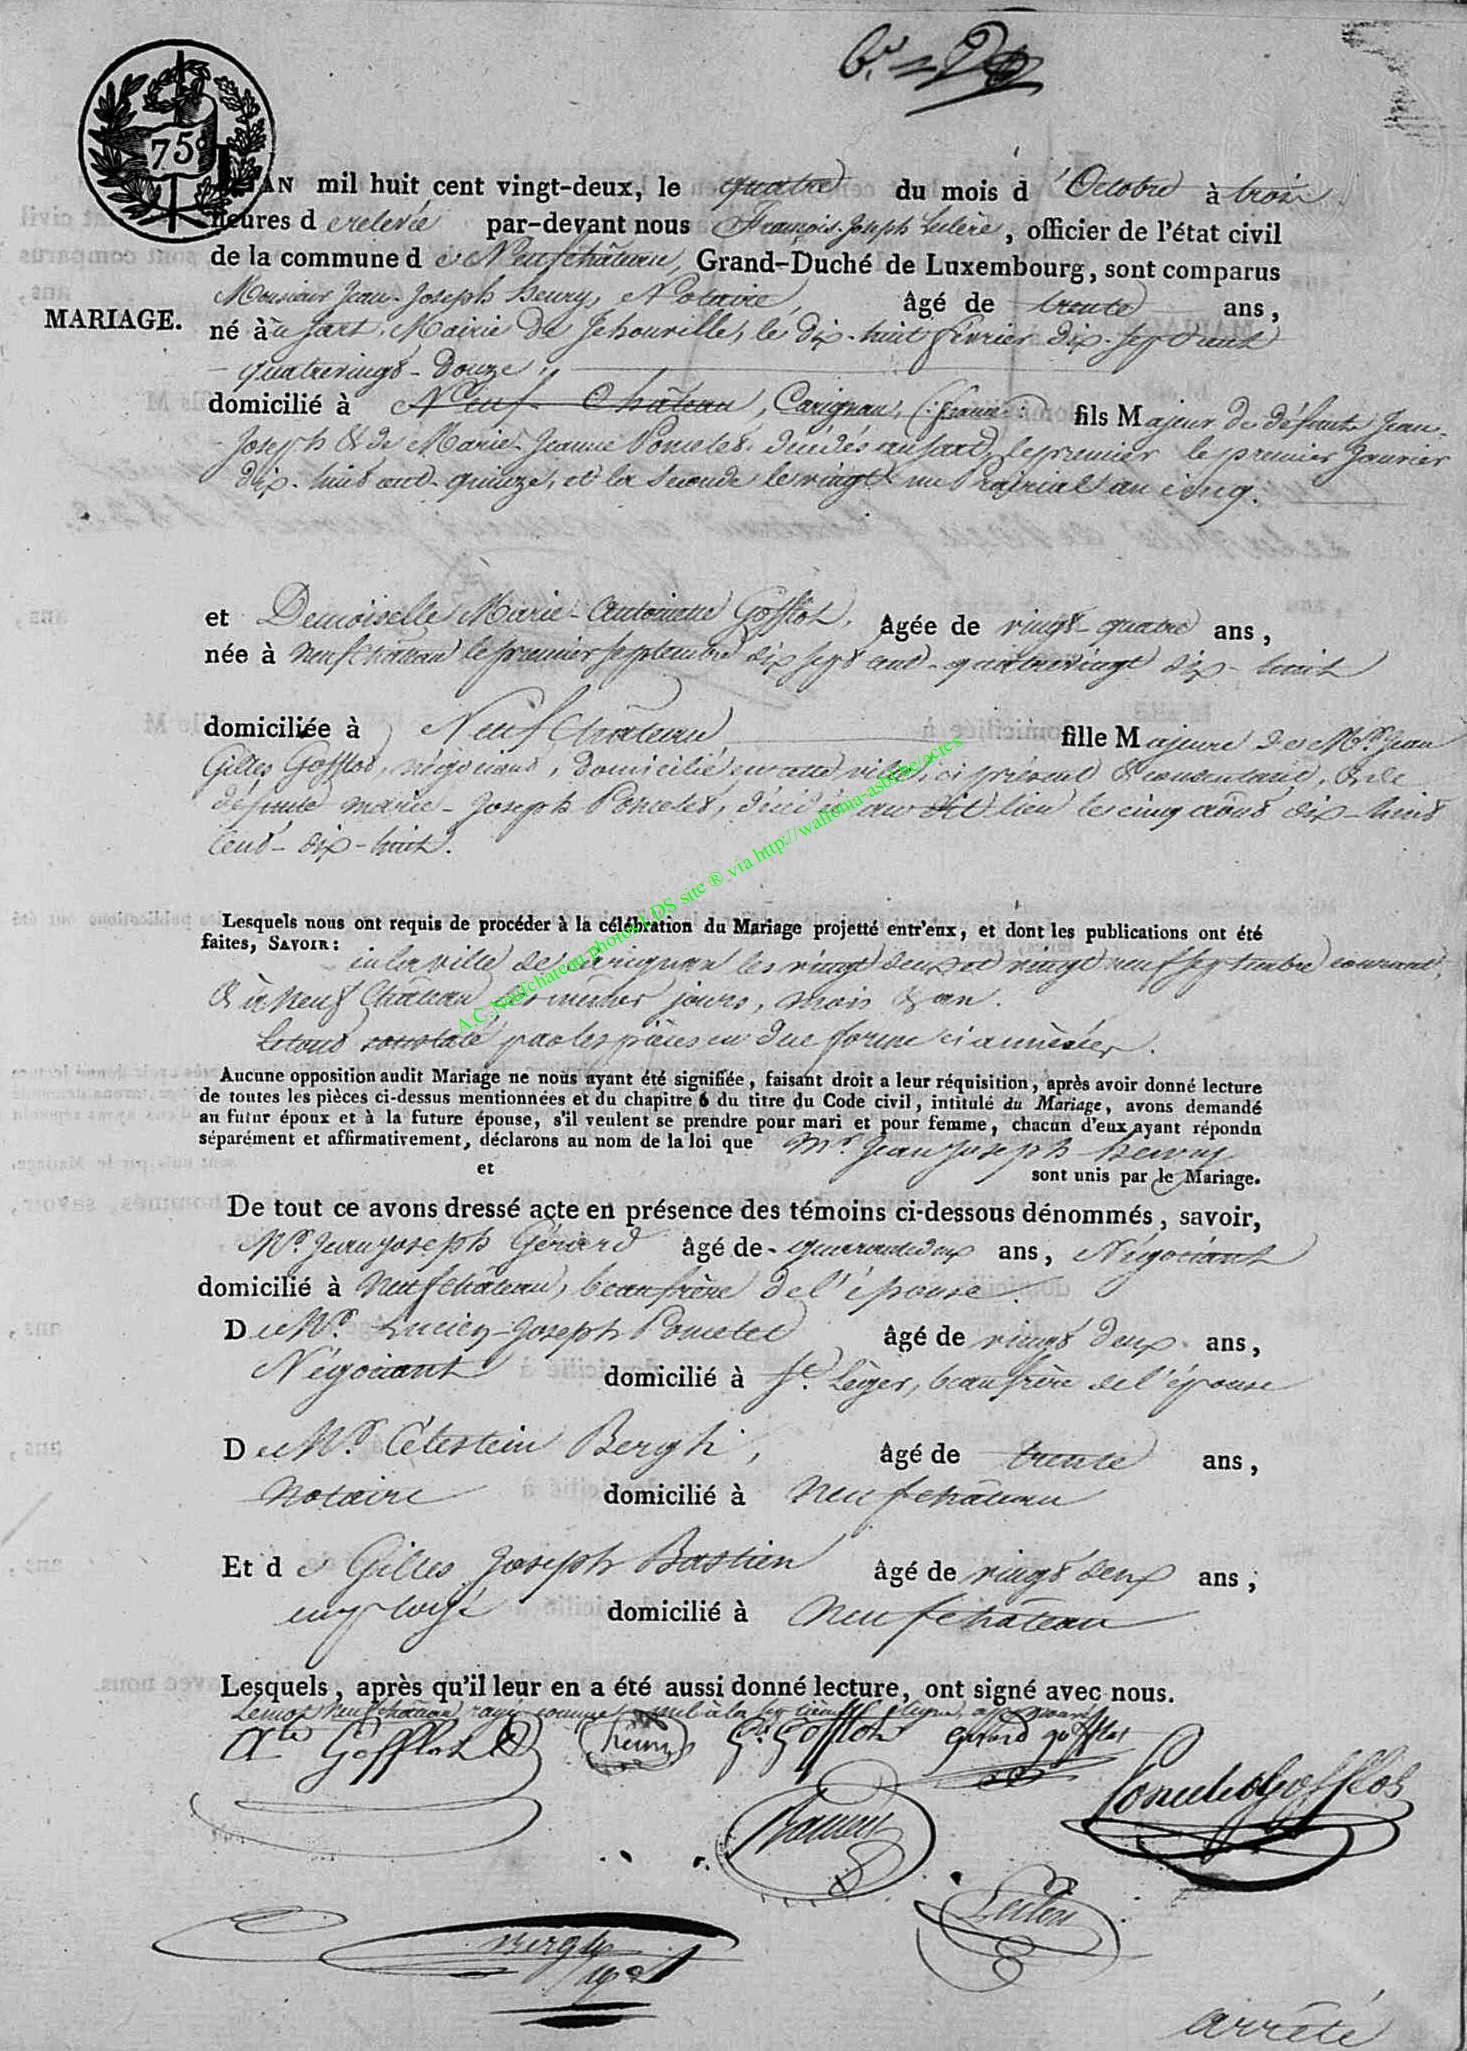 75c
L'AN mil huit cent vingt-deux, le quatre du mois d'Octobre à trois
heures de relevée par-devant nous François-Joseph Leclère, officier de l'état civil
de la commune de Neufchâteau, Grand-Duché de Luxembourg, sont comparus
Monsieur Jean-Joseph henry, Notaire, âgé de trente ans,
MARIAGE.
né à au fart, Mairie de Jehonville, le dix-huit février dix-sept cent
quatrevingt-Douze,
domicilié à Neuf Château, Carignan, (:france:) fils Majeur de défunts Jean-
Joseph & de Marie-Jeanne Poncelet, décédés au fart, le premier le premier Janvier
dix-huit cent-quinze, et la seconde le vingt un Prairial an cinq.
et Demoiselle Marie-Antoinette Gofflot, âgée de vingt-quatre ans,
née à Neufchâteau le premier septembre dix sept cent-quatrevingt dix-huit
domiciliée à Neufchâteau fille Majeure de Mr. Jean
Gilles Gofflot, négociant, domicilié en cette ville, ci présent & consentant, & de
défunte marie-Joseph Poncelet, décédée au dit lieu le cinq août dix-huit
cent-dix-huit.
Lesquels nous ont requis de procéder à la célébration du Mariage projetté entr'eux, et dont les publications ont été
faites, SAVOIR:
en la ville de Carignan les vingt deux et vingt neuf septembre courant,
& à Neufchâteau, les mêmes jours, mois & an.
Le tout constaté par les pièces en due forme ci annexées.
Aucune opposition audit Mariage ne nous ayant été signifiée, faisant droit a leur réquisition, après avoir donné lecture
de toutes les pièces ci-dessus mentionnées et du chapitre 6 du titre du Code civil, intitulé du Mariage, avons demandé
au futur époux et à la future épouse, s'il veulent se prendre pour mari et pour femme, chacun d'eux ayant répondu
séparément et affirmativement, déclarons au nom de la loi que Mr. Jean Joseph henry
et sont unis par le Mariage.
De tout ce avons dressé acte en présence des témoins ci-dessous dénommés, savoir,
Mr. Jean Joseph Gérard âgé de quarante deux ans, Négociant
domicilié à Neufchâteau, beaufrère de l'épouse.
De Mr. Lucien-Joseph Poncelet âgé de vingt deux ans,
Négociant domicilié à St. Léger, beau frère de l'épouse
De Mr. Célestein Bergh, âgé de trente ans,
Notaire domicilié à Neufchâteau
Et de Gilles Joseph Bastien âgé de vingt deux ans,
employé domicilié à Neufchâteau
Lesquels, après qu'il leur en a été aussi donné lecture, ont signé avec nous.
Le mot Neufchâteau rayé comme nul à la ligne, approuvé
Gofflot henry Gofflot gerard gofflot
Poncelet Gofflot
Leclère
Bergh
arrêté
A.C.Neufchateau photos LDS site ® via http://wallonia-asbl.be/actes